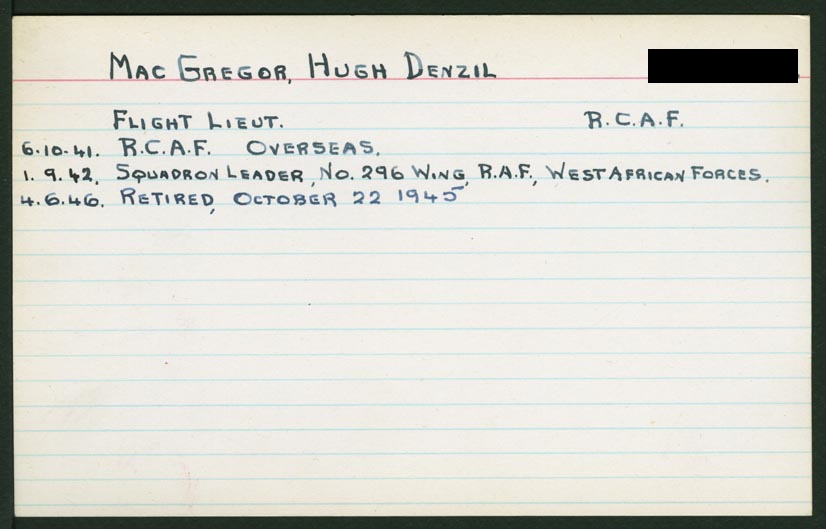 MAC GREGOR, HUGH DENZIL
FLIGHT LIEUT. R.C.A.F.
6.10.41. R.C.A.F. OVERSEAS.
1.9.42. SQUADRON LEADER, NO. 296 WING, R.A.F., WEST AFRICAN FORCES.
4.6.46. RETIRED, OCTOBER 22 1945